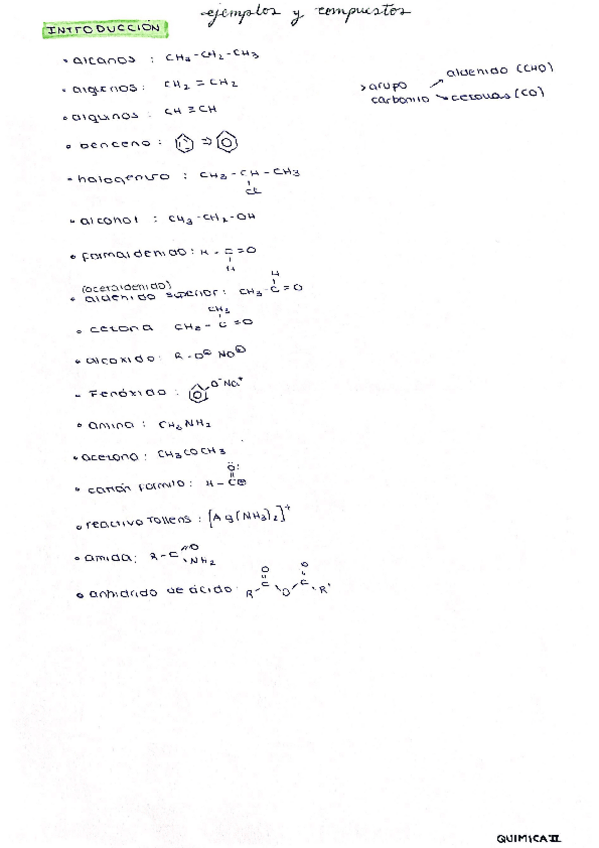 ejemplos y compuestos
INTRODUCCIÓN
• alcanos : CH3-CH2-CH3
• alquenos : CH2 = CH2
• alquinos : CH ≡ CH
• benceno : ⇒
• halogenuro : CH3 - CH - CH3
Cl
• alcohol : CH3-CH2-OH
• formaldehido : H - C = O
H
(acetaldehido)
• aldehido superior : CH3 - C = O
H
• cetona CH3 - C = O
CH3
• alcoxido : R - O⊖ Na⊕
- Fenóxido : O⁻Na⁺
• amina : CH3NH2
• acetona : CH3COCH3
• catión formilo : H - C⊕
Ö:
• reactivo tollens : [Ag(NH3)2]⁺
• amida : R - C = O
NH2
• anhidrido de ácido : R C O C R'
O O
> grupo carbonilo
aldehido (CHO)
cetonas (CO)
QUIMICA II